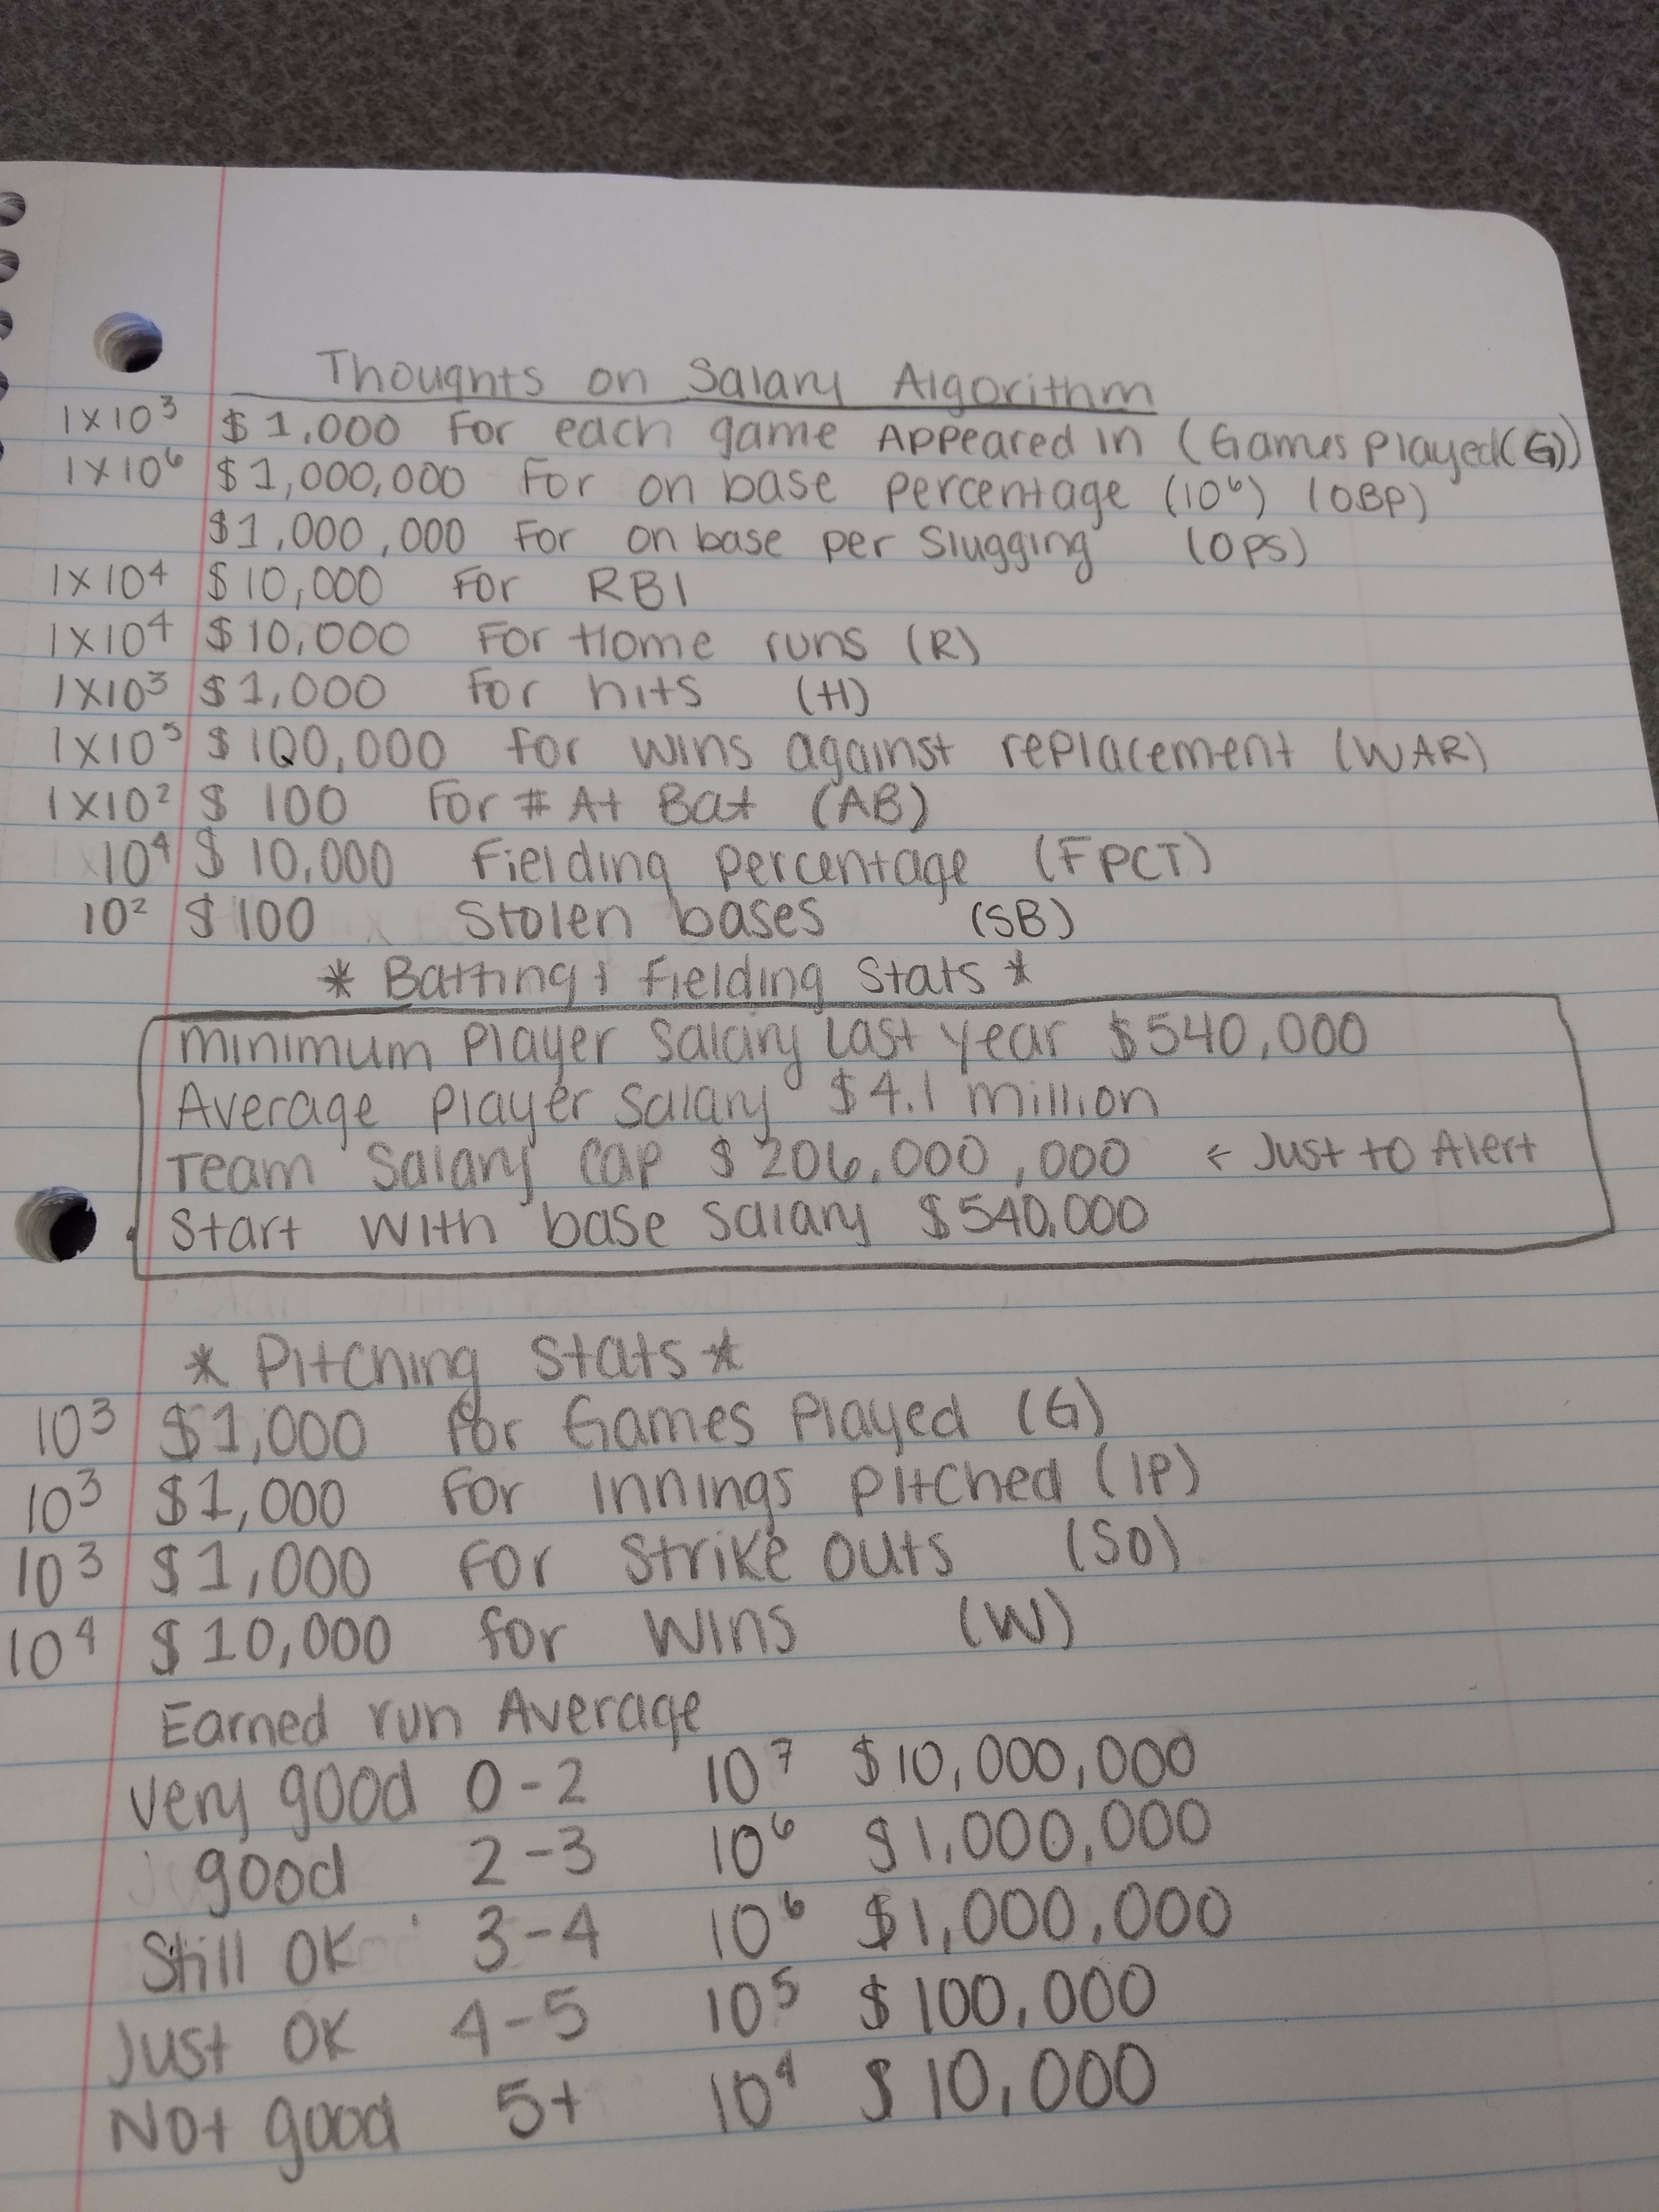 Thoughts on Salary Algorithm
1x10³ $1,000 For each game Appeared in (Games Played(G))
1x10⁶ $1,000,000 For on base percentage (10⁶) (OBP)
$1,000,000 For on base per Slugging (OPS)
1x10⁴ $10,000 For RBI
1x10⁴ $10,000 For Home runs (R)
1x10³ $1,000 For hits (H)
1x10⁵ $100,000 for wins against replacement (WAR)
1x10² $100 For # At Bat (AB)
10⁴ $10,000 Fielding percentage (FPCT)
10² $100 Stolen bases (SB)
* Batting & Fielding Stats *
minimum Player Salary Last year $540,000
Average Player Salary $4.1 million
Team Salary Cap $206,000,000 ← Just to Alert
Start With base Salary $540,000
* Pitching Stats *
10³ $1,000 for Games Played (G)
10³ $1,000 For Innings Pitched (IP)
10³ $1,000 For Strike outs (SO)
10⁴ $10,000 for Wins (W)
Earned run Average
very good 0-2 10⁷ $10,000,000
good 2-3 10⁶ $1,000,000
Still OK 3-4 10⁶ $1,000,000
Just OK 4-5 10⁵ $100,000
Not good 5+ 10⁴ $10,000